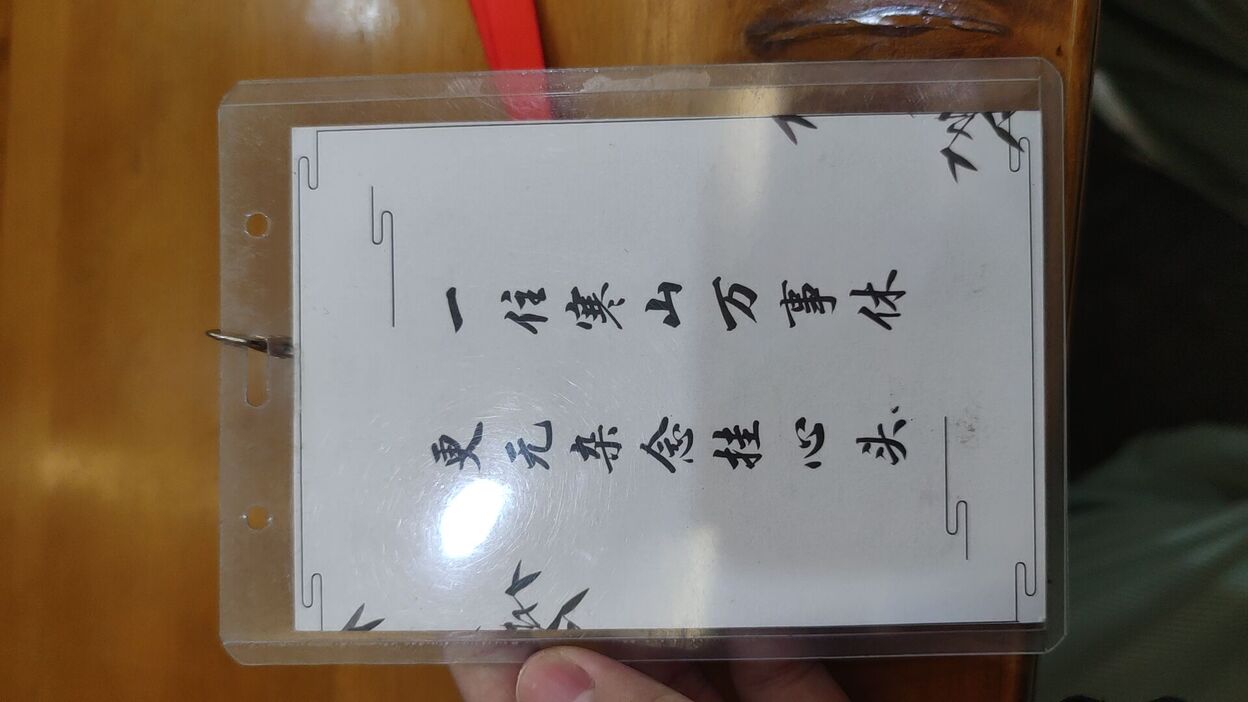 一住寒山万事休
更无杂念挂心头